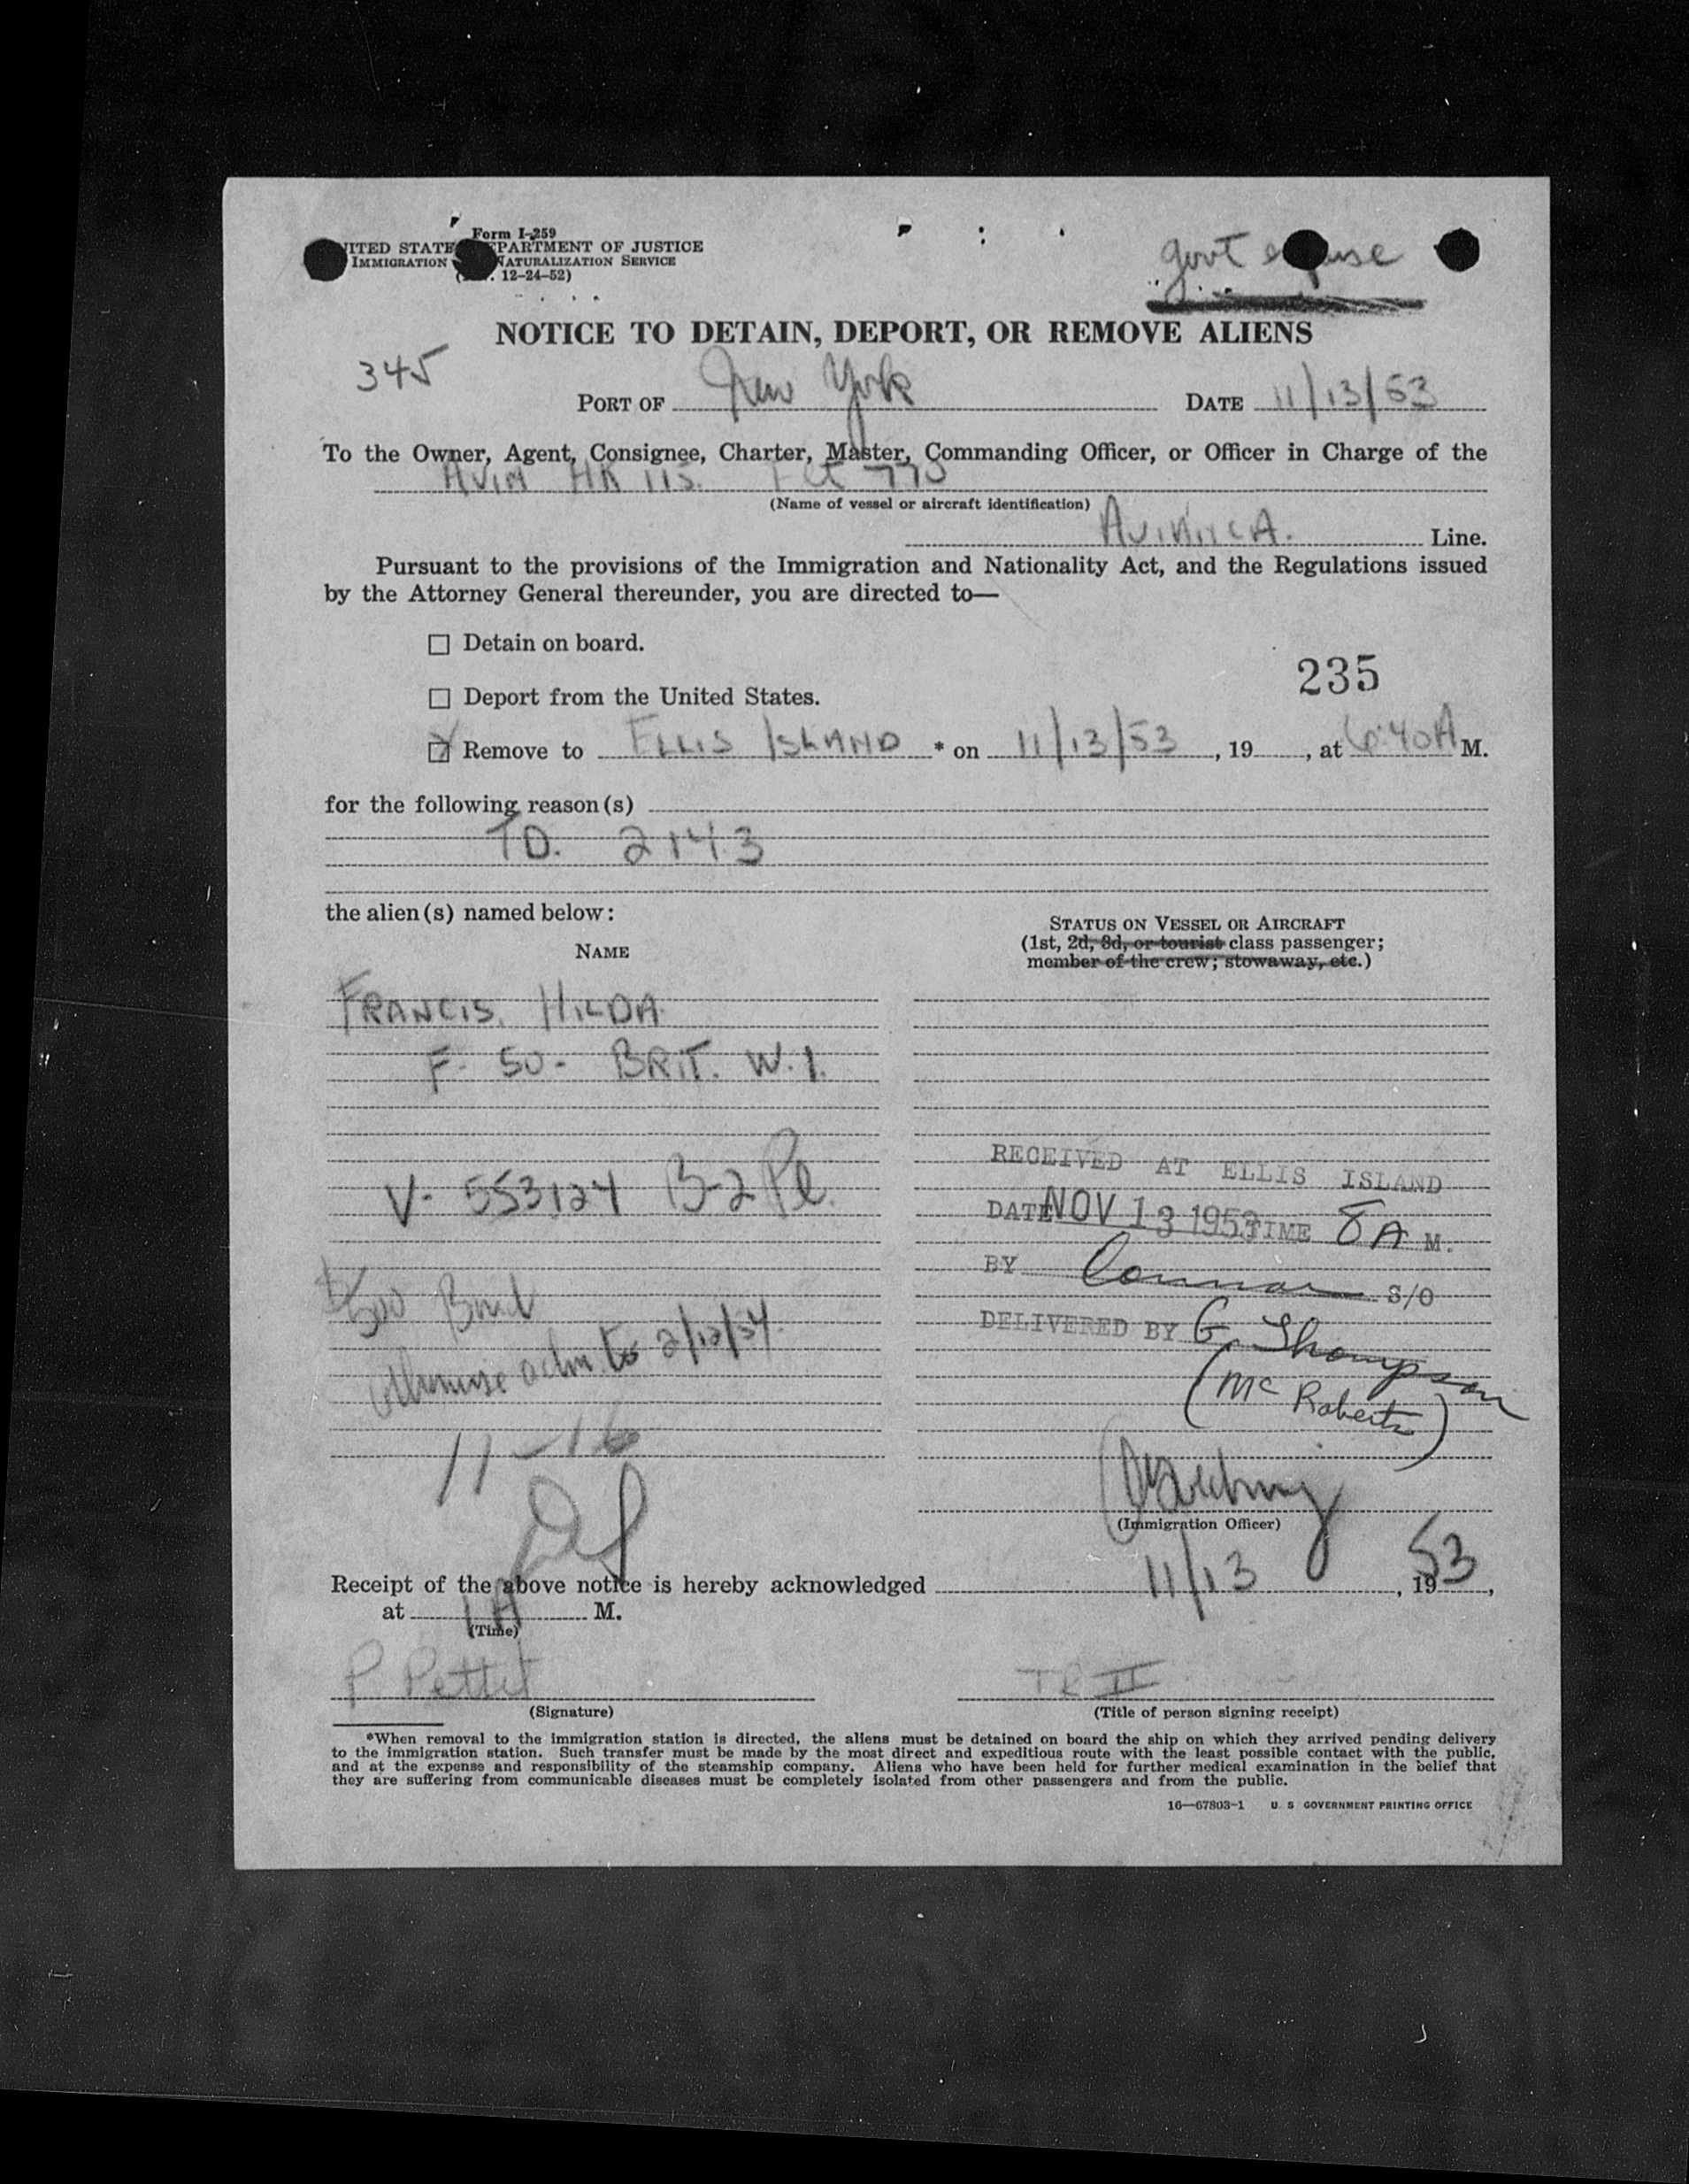 Form I-259
ITED STATE EPARTMENT OF JUSTICE
IMMIGRATION NATURALIZATION SERVICE
12-24-52)
govt e use
NOTICE TO DETAIN, DEPORT, OR REMOVE ALIENS
345
PORT OF New York DATE 11/13/53
To the Owner, Agent, Consignee, Charter, Master, Commanding Officer, or Officer in Charge of the
HK 115. 
(Name of vessel or aircraft identification)
Line.
Pursuant to the provisions of the Immigration and Nationality Act, and the Regulations issued
by the Attorney General thereunder, you are directed to—
☐ Detain on board.
235
☐ Deport from the United States.
☑ Remove to ELLIS ISLAND * on 11/13/53, 19 , at 6:40A M.
for the following reason(s)
TD. 2143
the alien(s) named below:
STATUS ON VESSEL OR AIRCRAFT
NAME
(1st, 2d, 3d, or tourist class passenger;
member of the crew; stowaway, etc.)
FRANCIS, HILDA
F- 50- BRIT. W.I.
RECEIVED AT ELLIS ISLAND
V- 553124 B-2 Pl.
DATE NOV 13 1953 TIME 8 A M.
BY Connor S/O
$500 Bond
DELIVERED BY G. Thompson
adm. to 2/12/54.
(McRoberts)
11-16
(Immigration Officer)
Receipt of the above notice is hereby acknowledged 11/13, 1953,
at 1A M.
(Time)
P. Pettit
TR II
(Signature)
(Title of person signing receipt)
*When removal to the immigration station is directed, the aliens must be detained on board the ship on which they arrived pending delivery
to the immigration station. Such transfer must be made by the most direct and expeditious route with the least possible contact with the public,
and at the expense and responsibility of the steamship company. Aliens who have been held for further medical examination in the belief that
they are suffering from communicable diseases must be completely isolated from other passengers and from the public.
16—67803-1 U. S. GOVERNMENT PRINTING OFFICE